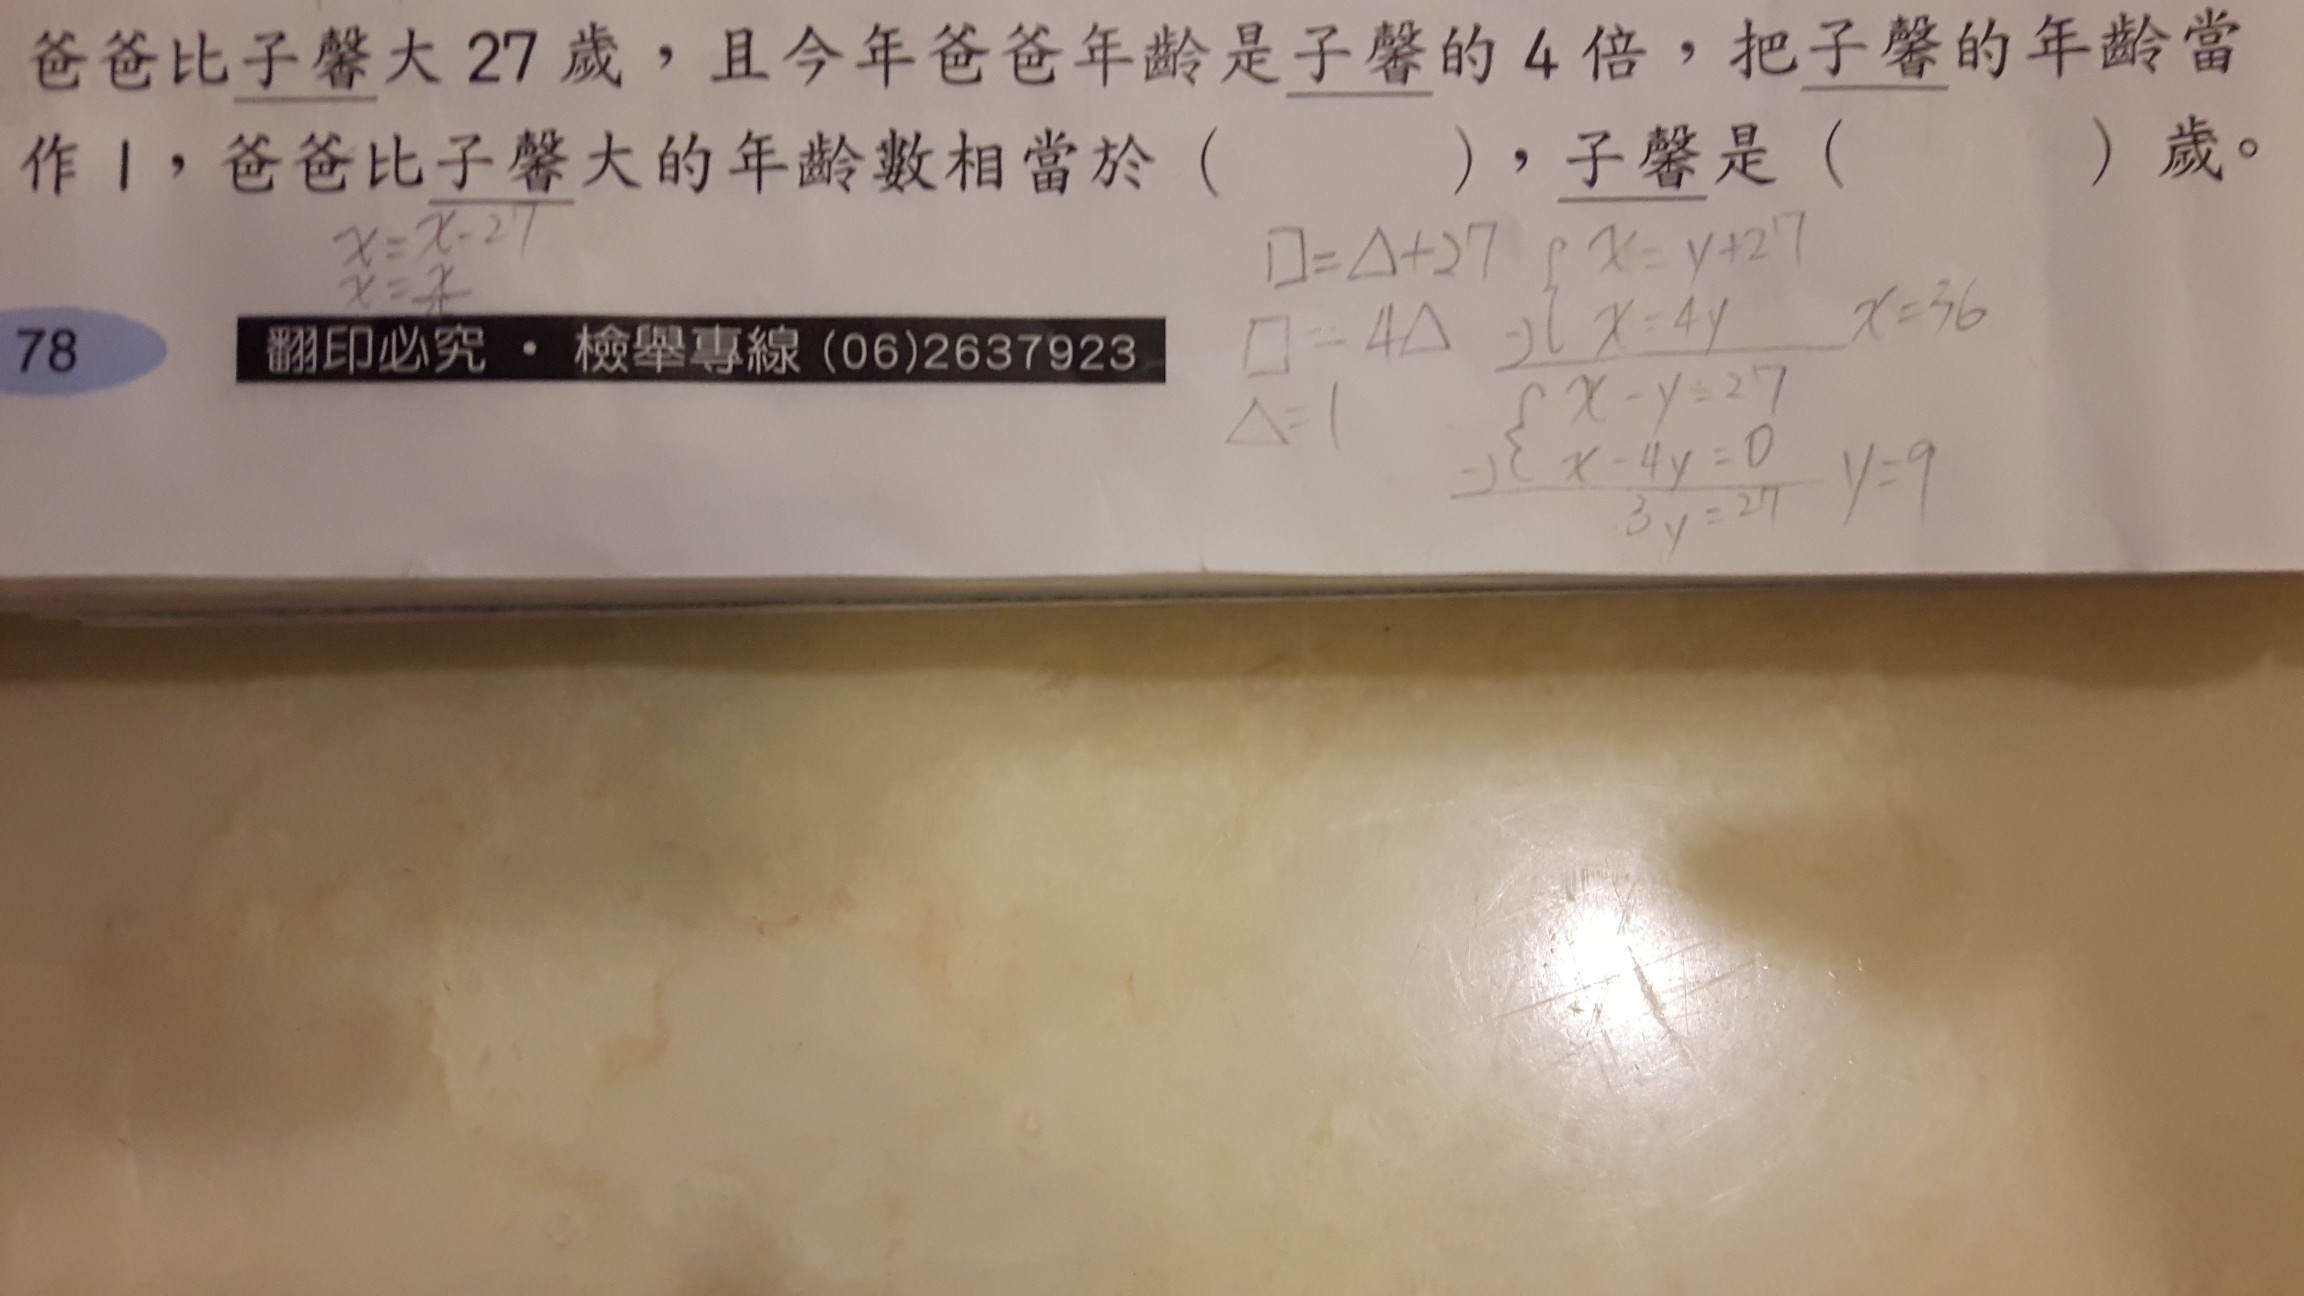 爸爸比子馨大 27 歲，且今年爸爸年齡是子馨的 4 倍，把子馨的年齡當
作 1，爸爸比子馨大的年齡數相當於（　　　），子馨是（　　　）歲。
x=x-27
x=
□=△+27
□=4△
△=1
x=y+27
x=4y
x=36
x-y=27
x-4y=0
3y=27
y=9
78
翻印必究・檢舉專線 (06)2637923